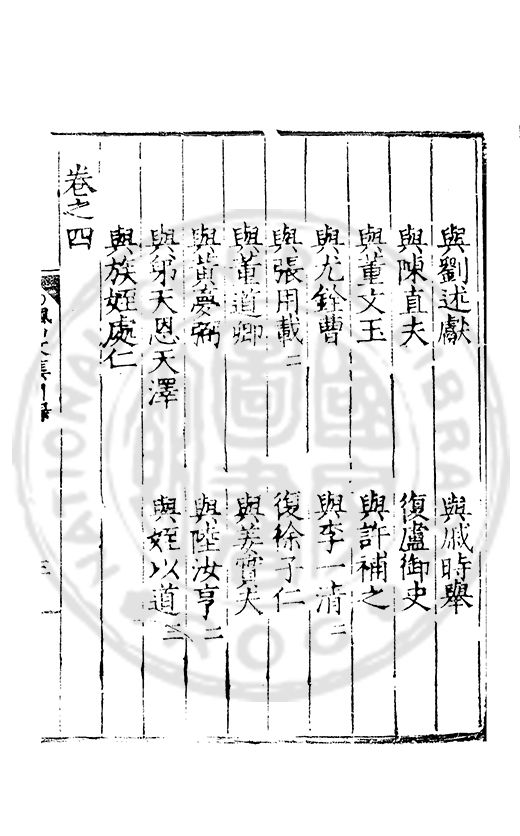 與劉述獻　與戚時舉
與陳直夫　復盧御史
與董文玉　與許補之
與尤銓曹　與李一清二
與張用載二　復徐子仁
與董道卿　與姜賓夫
與黃夢弼　與陸汝亨二
與弟天恩天澤　與姪以道二
與族姪處仁
卷之四
三